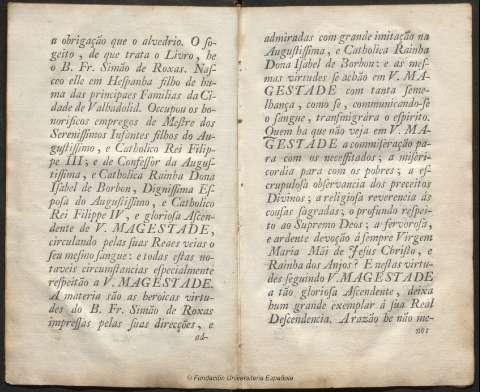 a obrigação que o alvedrio. O so-
geito, de que trata o Livro, he
o B. Fr. Simão de Roxas. Nas-
ceo elle em Hespanha filho de hu-
ma das principaes Familias da Ci-
dade de Valhadolid. Occupou os ho-
norificos empregos de Mestre dos
Serenissimos Infantes filhos do Au-
gustissimo, e Catholico Rei Filip-
pe III; e de Confessor da Augus-
tissima, e Catholica Rainha Dona
Isabel de Borbon, Dignissima Es-
posa do Augustissimo, e Catholico
Rei Filippe IV, e gloriosa Ascen-
dente de V. MAGESTADE,
circulando pelas suas Reaes veias o
seu mesmo sangue: e todas estas no-
taveis circunstancias especialmente
respeitão a V. MAGESTADE.
A materia são as heroicas virtu-
des do B. Fr. Simão de Roxas
impressas pelas suas direcções, e
ad-
admiradas com grande imitação na
Augustissima, e Catholica Rainha
Dona Isabel de Borbon: e as mes-
mas virtudes se achão em V. MA-
GESTADE com tanta seme-
lhança, como se, communicando-se
o sangue, transmigrára o espirito.
Quem ha que não veja em V. MA-
GESTADE a commiseração pa-
ra com os necessitados; a miseri-
cordia para com os pobres; a es-
crupulosa observancia dos preceitos
Divinos; a religiosa reverencia ás
cousas sagradas; o profundo respei-
to ao Supremo Deos; a fervorosa,
e ardente devoção á sempre Virgem
Maria Mãi de Jesus Christo, e
Rainha dos Anjos? E nestas virtu-
des seguindo V. MAGESTADE
a tão gloriosa Ascendente, deixa
hum grande exemplar á sua Real
Descendencia. A razão he não me-
nos
© Fundación Universitaria Española